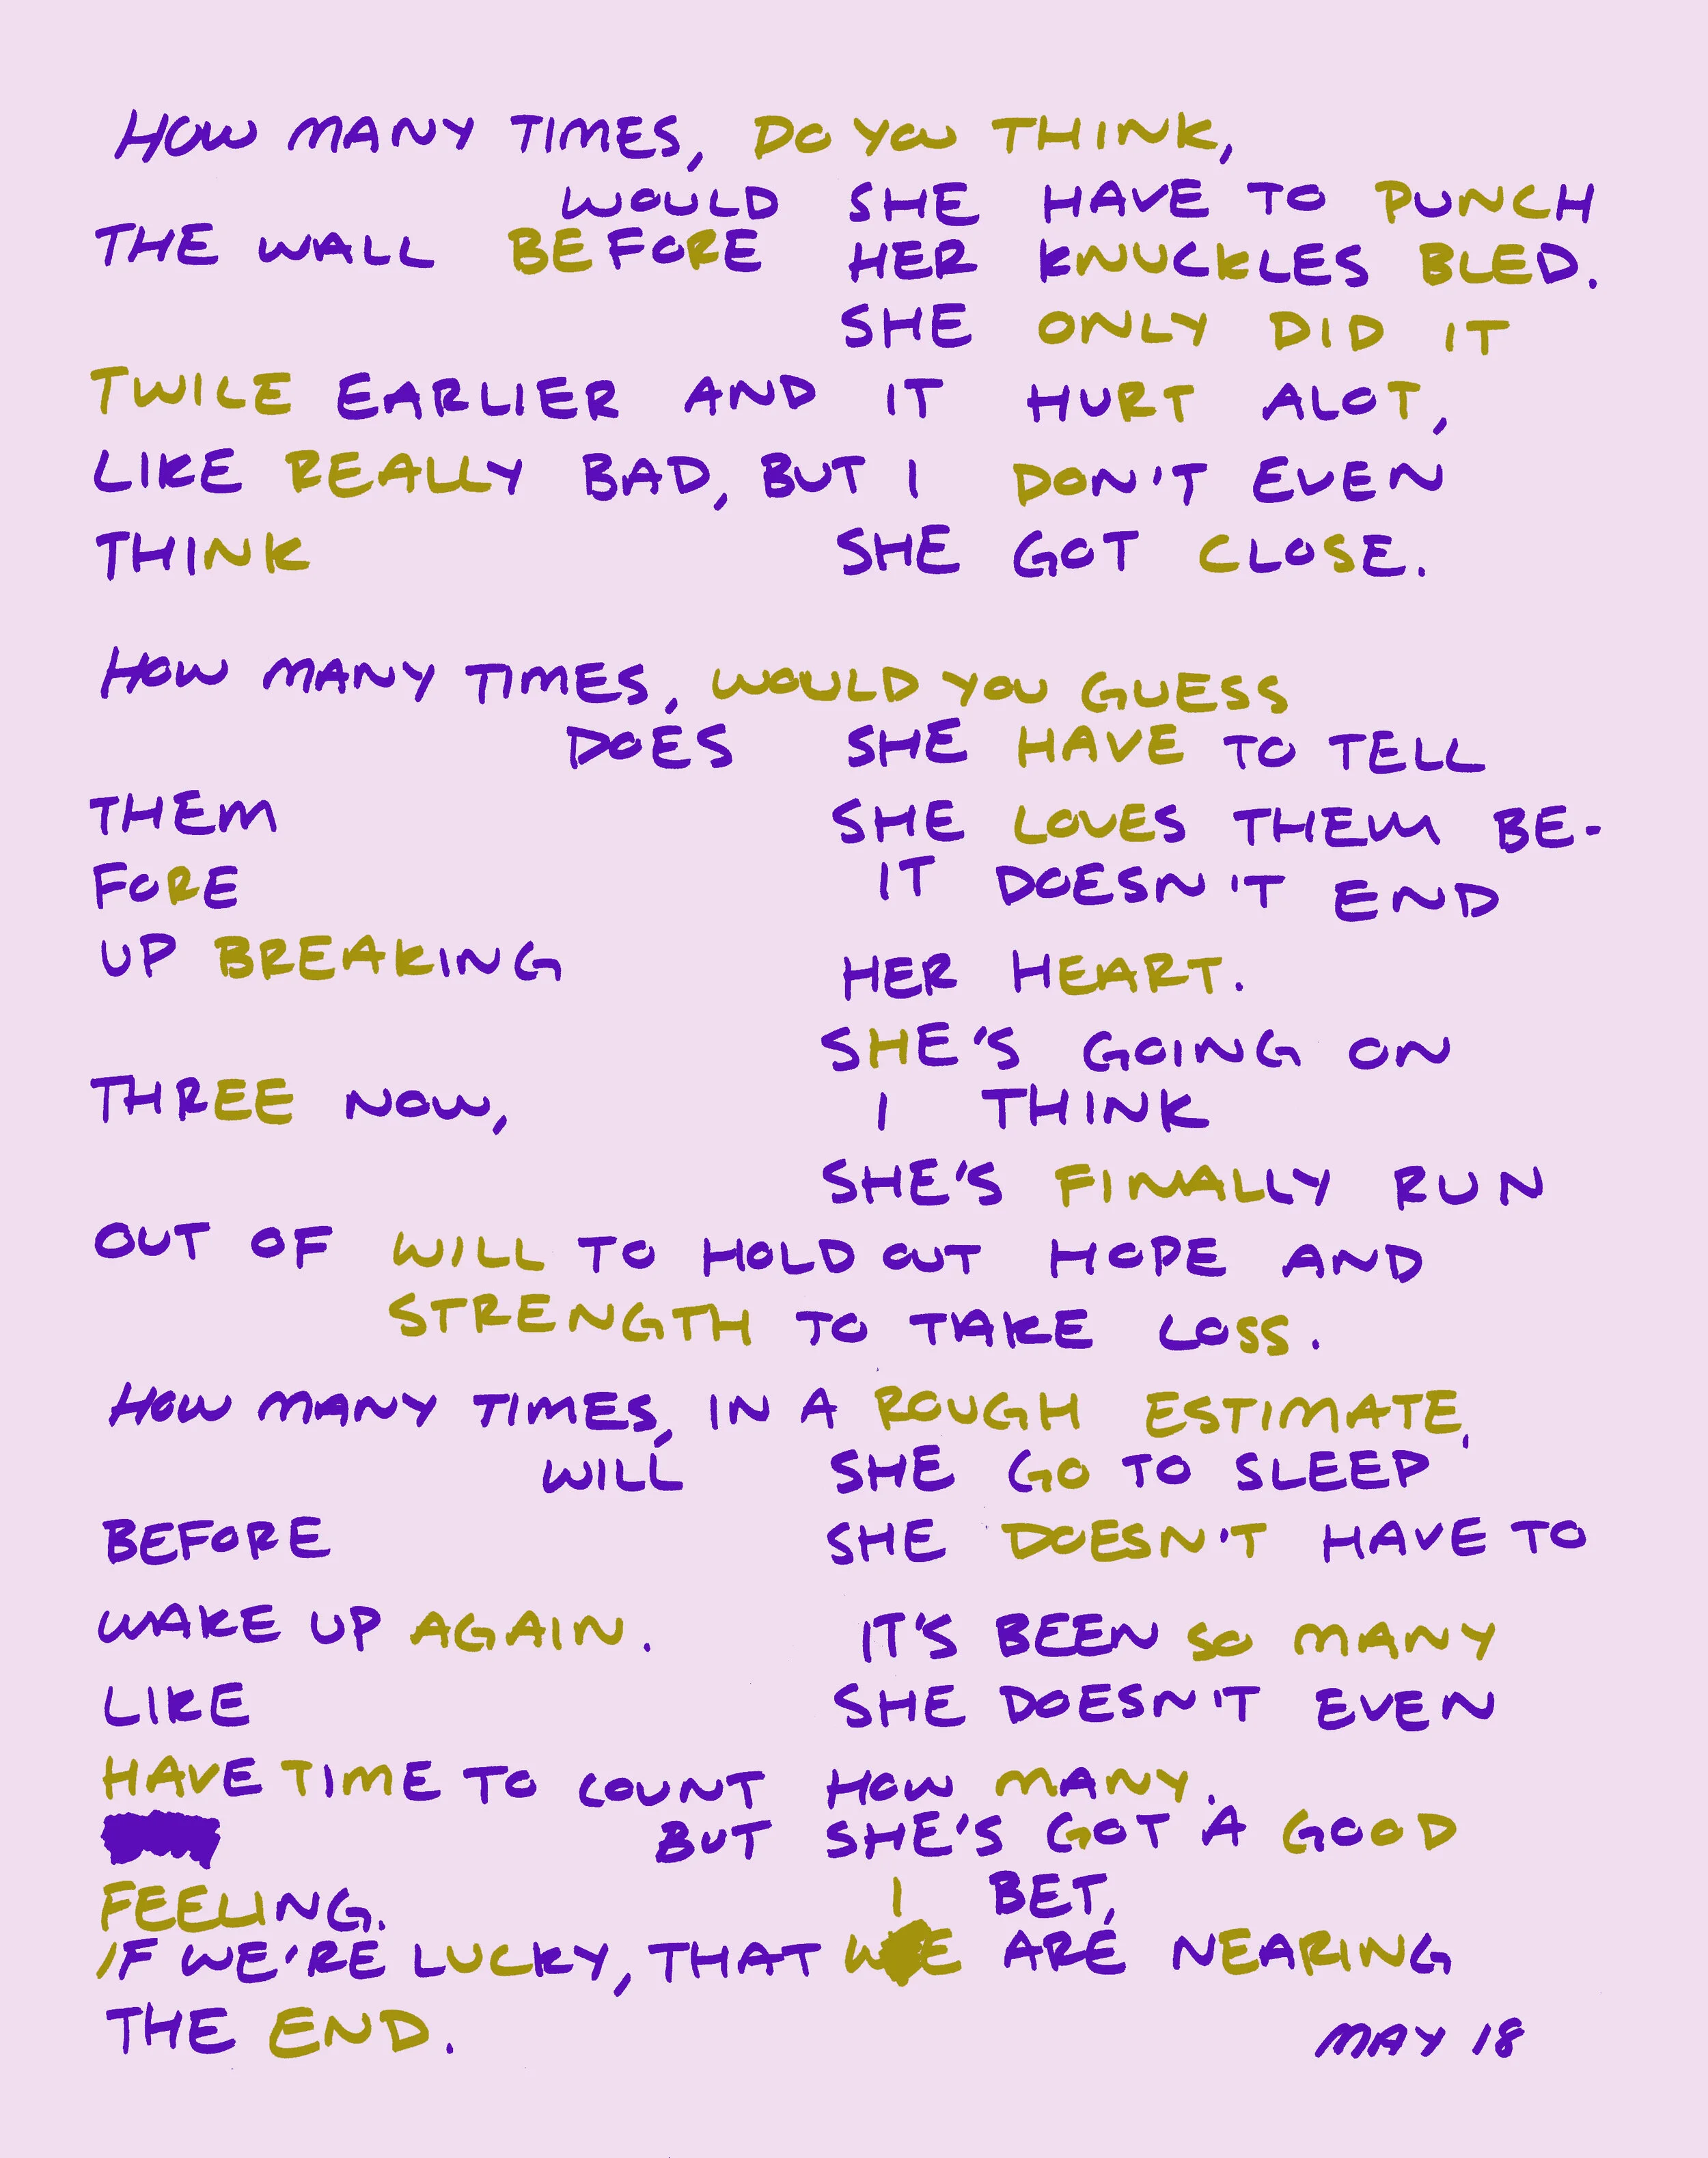 HOW MANY TIMES, DO YOU THINK,
WOULD SHE HAVE TO PUNCH
THE WALL BEFORE HER KNUCKLES BLED.
SHE ONLY DID IT
TWICE EARLIER AND IT HURT ALOT,
LIKE REALLY BAD, BUT I DON'T EVEN
THINK SHE GOT CLOSE.
HOW MANY TIMES, WOULD YOU GUESS
DOES SHE HAVE TO TELL
THEM SHE LOVES THEM BE-
FORE IT DOESN'T END
UP BREAKING HER HEART.
SHE'S GOING ON
THREE NOW, I THINK
SHE'S FINALLY RUN
OUT OF WILL TO HOLD OUT HOPE AND
STRENGTH TO TAKE LOSS.
HOW MANY TIMES, IN A ROUGH ESTIMATE,
WILL SHE GO TO SLEEP
BEFORE SHE DOESN'T HAVE TO
WAKE UP AGAIN. IT'S BEEN SO MANY
LIKE SHE DOESN'T EVEN
HAVE TIME TO COUNT HOW MANY.
BUT SHE'S GOT A GOOD
FEELING. I BET,
IF WE'RE LUCKY, THAT WE ARE NEARING
THE END.
MAY 18